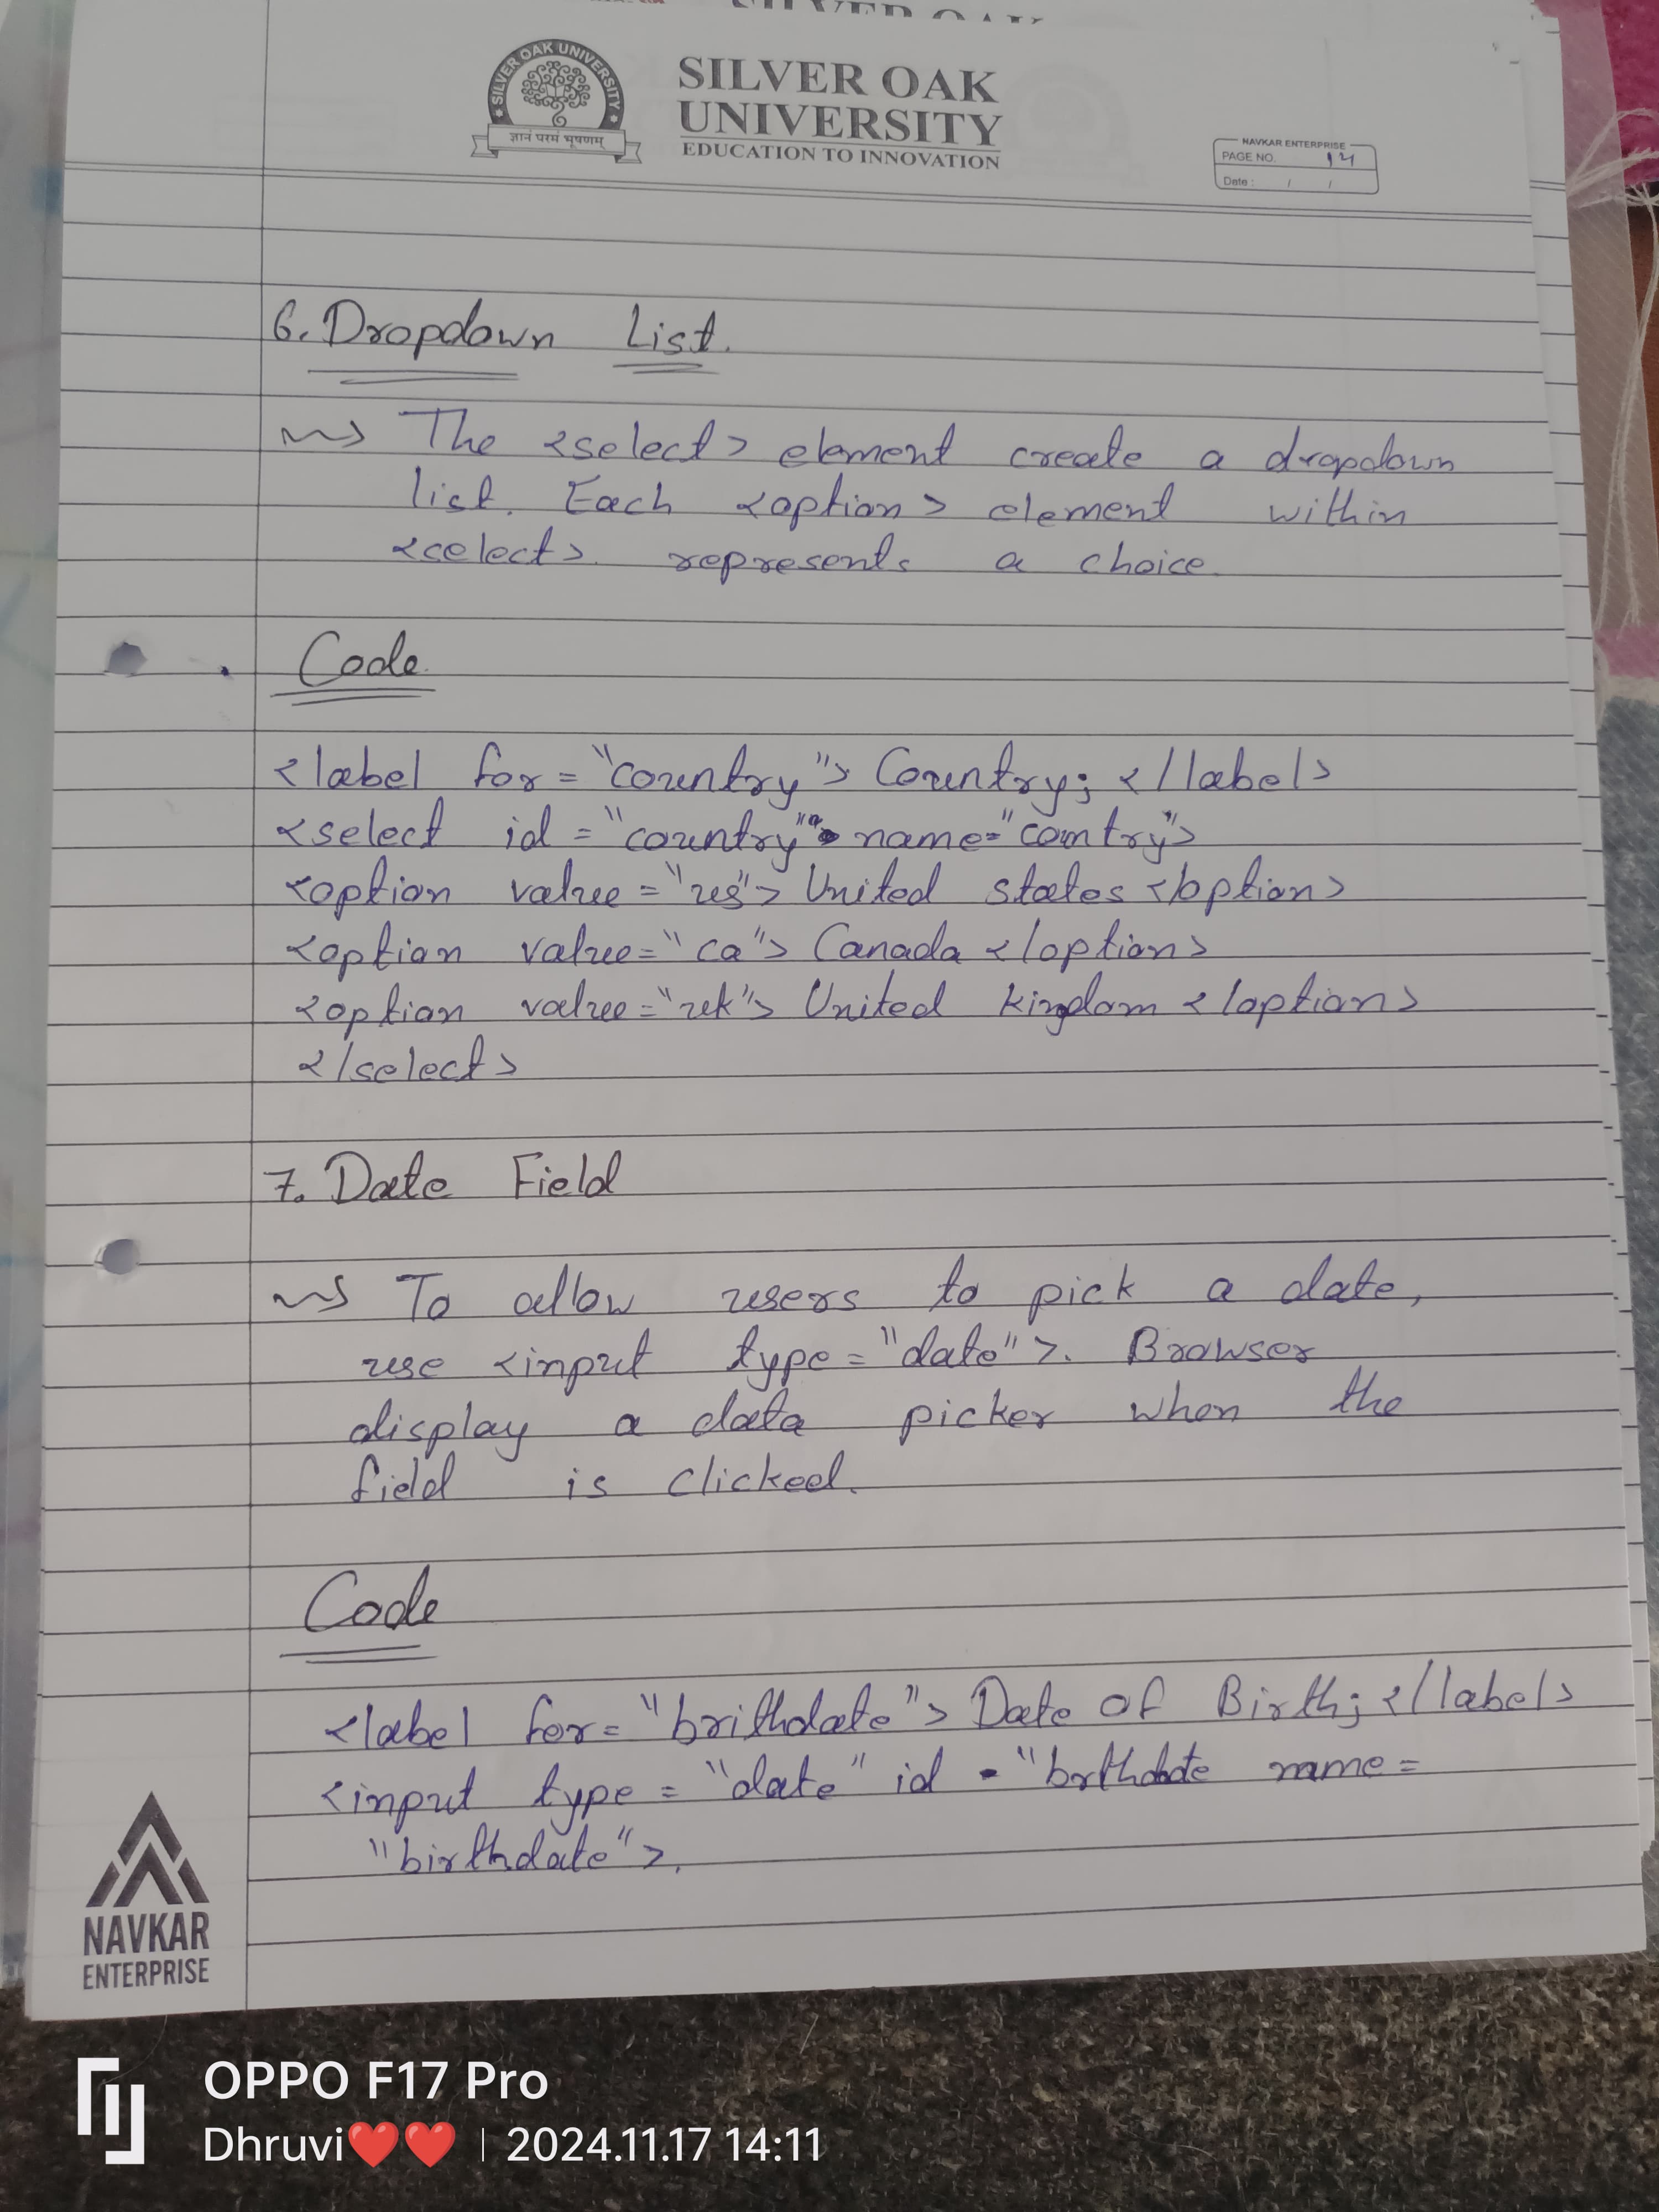 SILVER OAK UNIVERSITY
ज्ञानं परमं भूषणम्
SILVER OAK
UNIVERSITY
EDUCATION TO INNOVATION
NAVKAR ENTERPRISE
PAGE NO. 14
Date : / /
6. Dropdown List.
The <select> element create a dropdown
list. Each <option> element within
<select> represents a choice.
Code
<label for = "country"> Country; </label>
<select id = "country" name="country">
<option value = "us"> United states </option>
<option value = "ca"> Canada </option>
<option value = "uk"> United kingdom </option>
</select>
7. Date Field
To allow users to pick a date,
use <input type = "date">. Browser
display a data picker when the
field is clicked.
Code
<label for = "brithdate"> Date of Birth; </label>
<input type = "date" id = "brthdate name =
"birthdate">.
NAVKAR
ENTERPRISE
OPPO F17 Pro
Dhruvi❤️❤️ | 2024.11.17 14:11